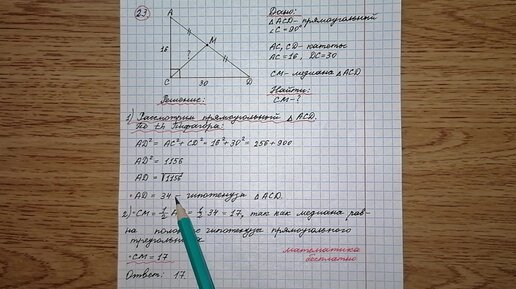 23
Дано:
△ACD-прямоугольный
∠C=90°
AC, CD-катеты
AC=16, DC=30
CM-медиана △ACD
Найти:
CM-?
A
16
M
?
C
30
D
Решение:
1) Рассмотрим прямоугольный △ACD.
По th Пифагора:
AD²=AC²+CD²=16²+30²=256+900
AD²=1156
AD=√1156
•AD=34 - гипотенуза △ACD.
2)•CM=½A =½·34=17, так как медиана рав-
на гипотенузы прямоугольного
треугольника
•CM=17
Ответ: 17.
математика
бесплатно